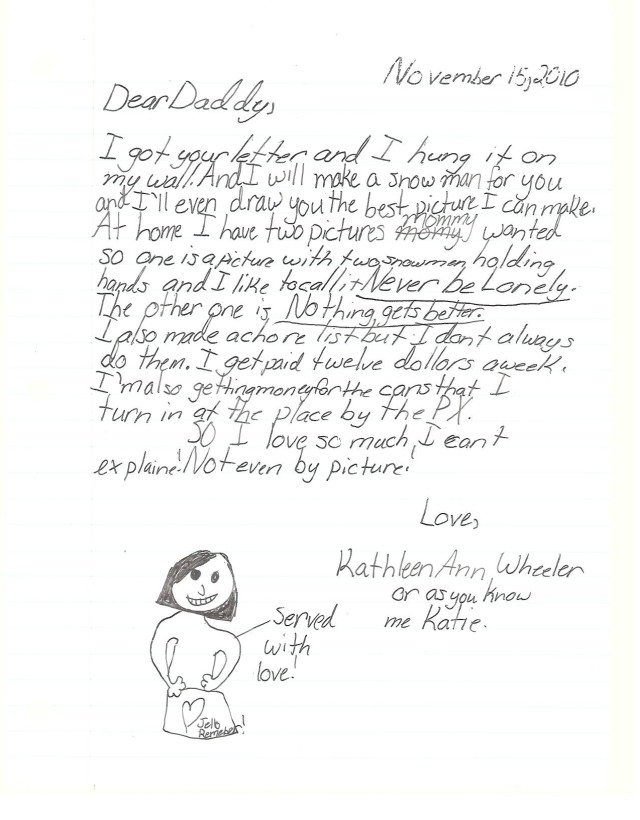 November 15, 2010
Dear Daddy,
I got your letter and I hung it on
my wall. And I will make a snow man for you
and I'll even draw you the best picture I can make.
mommy
At home I have two pictures momy wanted
so one is a picture with two snowman holding
hands and I like to call it Never be Lonely.
The other one is Nothing gets better.
I also made a chore list but I dont always
do them. I get paid twelve dollors a week.
I'm also getting money for the cans that I
turn in at the place by the PX.
SO I love so much, I can't
explaine! Not even by picture!
Love,
Kathleen Ann Wheeler
or as you know
me Katie.
Served
with
love!
Jello
Remeber!